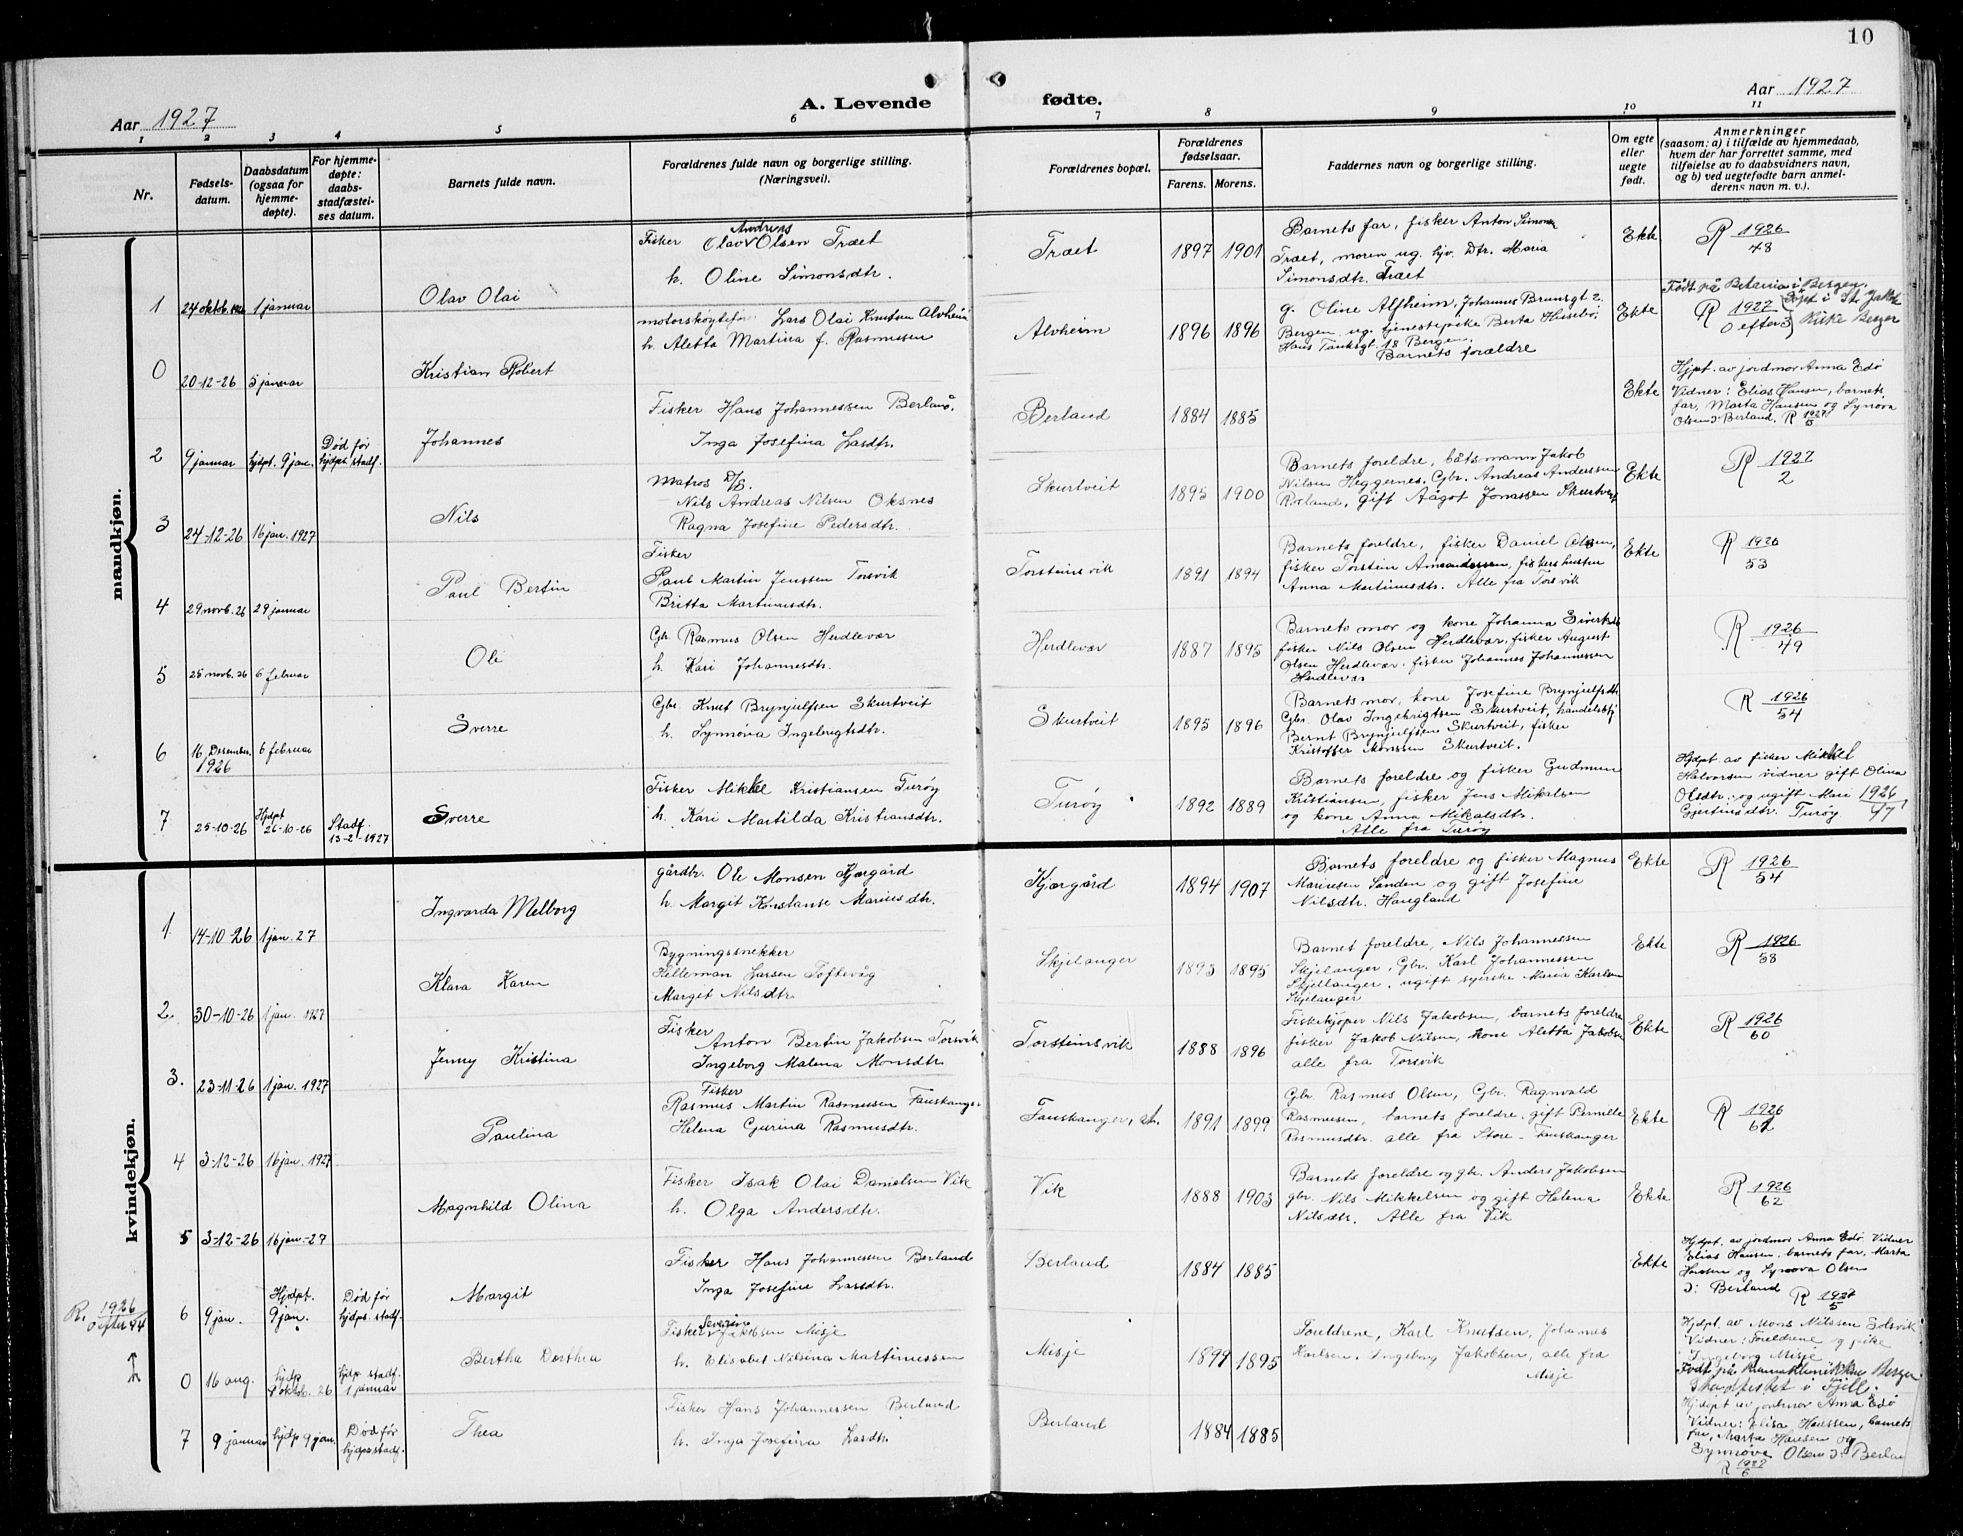 10
Aar 1927
A. Levende fødte.
Aar 1927
1 2 3 4 5 6 7 8 9 10 11
Nr.
Fødsels-
datum.
Daabsdatum
(ogsaa for
hjemme-
døpte).
For hjemme-
døpte:
daabs-
stadfæstel-
ses datum.
Barnets fulde navn.
Forældrenes fulde navn og borgerlige stilling.
(Næringsvei).
Forældrenes bopæl.
Forældrenes
fødselsaar.
Farens. Morens.
Faddernes navn og borgerlige stilling.
Om egte
eller
uegte
født.
Anmerkninger
(saasom: a) i tilfælde av hjemmedaab,
hvem der har forrettet samme, med
tilføielse av to daabsvidners navn,
og b) ved uegtefødte barn anmel-
derens navn m. v.).
mandkjøn.
1 24 oktob. 1926 1 januar
Olav Olai
Fisker Olav Andreas Olsen Træet
h. Oline Simonsdtr.
Træet 1897 1901
Barnets far, fisker Anton Simons
Træet, moren ug. hjv. Dtr. Maria
Simonsdtr. Træet
Ekte
R 1926/48
0 20-12-26 5 januar
Kristian Robert
Lars Olai Knutsen Alvheim
h. Aletta Martina f. Rasmussen
Alvheim 1896 1896
g. Oline Alfheim, Johannes Brunsgt 2
Bergen. ug. tjenestepike Berta Husebø,
Hans Tanksgt. 18 Bergen.
Barnets forældre
Ekte
Født på Betania i Bergen.
R 1927/0 efter 3 Døpt i St. Jakob
Kirke Bergen
2 9 januar hjdpt. 9 jan. Død før
hjdpt. stadf.
Johannes
Fisker Hans Johannessen Berland.
Inga Josefina Larsdtr.
Berland 1884 1885
Ekte
Hjpt. av jordmor Anna Edø
Vidner: Elias Hansen, barnets
far, Marta Hansen og Synøva
Olsen d: Berland. R 1927/5
3 24-12-26 16 jan. 1927
Nils
Matros D/S.
Nils Andreas Nilsen Oksnes
Ragna Josefine Pedersdtr.
Skurtveit 1895 1900
Barnets foreldre, båtsmann Jakob
Nilsen Heggernes. Gbr. Andreas Anderssen
Rorland, gift Aagot Jonassen Skurtveit
Ekte
R 1927/2
4 29 novb. 26 29 januar
Paul Bertin
Fisker
Paul Martin Jenssen Torsvik
Britta Martinusdtr.
Torsteinsvik 1891 1894
Barnets foreldre, fisker Daniel Olsen,
fisker Torstein Amundessen, fiskers hustru
Anna Martinusdtr. Alle fra Torsvik
Ekte
R 1926/53
5 25 novb. 26 6 februar
Ole
Gbr. Rasmus Olsen Herdlevær
h. Kari Johannesdtr.
Herdlevær 1887 1895
Barnets mor og kone Johanna Sivertsdtr
fisker Nils Olsen Herdlevær, fisker August
Olsen Herdlevær. fisker Johannes Johannessen
Herdlevær
R 1926/49
6 16 Desember 1926 6 februar
Sverre
Gbr. Knut Brynjulfsen Skurtveit
h. Synnøva Ingebrigtsdtr.
Skurtveit 1895 1896
Barnets mor, kone Josefine Brynjulfsdtr
Gbr. Olav Ingebrigtsen Skurtveit, handelsbtj
Bernt Brynjulfsen Skurtveit, fisker
Kristoffer Monssen Skurtveit.
R 1926/54
7 25-10-26 Hjdpt
26-10-26 Stadf.
13-2-1927
Sverre
Fisker Mikkel Kristiansen Turøy
h. Kari Martilda Kristiansdtr.
Turøy 1892 1889
Barnets foreldre og fisker Gudmun
Kristiansen, fisker Jens Mikalsen
og kone Anna Mikalsdtr.
Alle fra Turøy
Hjdpt av fisker Mikkel
Halvorsen vidner gift Olina
Olsdtr. og ugift Mari 1926/47
Gjertinsdtr. Turøy
kvindekjøn.
1. 14-10-26 1 jan. 27
Ingvarda Melborg
gårdbr. Ole Monsen Kjærgård
h. Margit Konstanse Mariusdtr.
Kjærgård 1894 1907
Barnets foreldre og fisker Magnus
Mariusen Sanden og gift Josefine
Nilsdtr. Haugland
Ekte
R 1926/54
2. 30-10-26 1 jan. 1927
Klara Karen
Bygningssnekker
Hilleman Larsen Toftevåg
Margit Nilsdtr.
Skjelanger 1893 1895
Barnet foreldre, Nils Johannessen
Skjelanger, Gbr. Karl Johannessen
Skjellanger. ugift syerske Maria Karlsen
Skjelanger
Ekte
R 1926/58
3. 23-11-26 1 jan. 1927
Jenny Kristina
Fisker
Anton Bertin Jakobsen Torsvik
Ingeborg Malena Monsdtr.
Torsteinsvik 1888 1896
Fiskekjøper Nils Jakobsen, barnets foreldre
fisker Jakob Nilsen, kone Aletta Jakobsen
alle fra Torsvik
Ekte
R 1926/60
4 3-12-26 16 jan. 1927
Paulina
Fisker
Rasmus Martin Rasmussen Fauskanger
Helena Gurina Rasmusdtr.
Fauskanger, st. 1891 1899
Gbr Rasmus Olsen, Gbr. Ragnvald
Rasmussen, barnets foreldre, gift Pernille
Rasmusdtr. alle fra Store-Fauskanger
Ekte
R 1926/61
5 3-12-26 16 jan-27
Magnhild Olina
Fisker Isak Olai Danielsen Vik
h. Olga Andersdtr.
Vik 1888 1903
Barnets foreldre og gbr. Anders Jakobsen
gbr. Nils Mikkelsen og gift Helena
Nilsdtr. Alle fra Vik
Ekte
R 1926/62
6 9 jan. Hjdpt.
9 jan. Død før
hjdps. stadf.
Margit
Fisker Hans Johannessen Berland
Inga Josefine Larsdtr.
Berland 1884 1885
Ekte
Hjdpt. av jordmor Anna Edø. Vidner
Elias Hansen, barnets far, Marta
Hansen og Synøva Olsen
d: Berland R 1927/5
R. 1926/0 efter 44
0 16 aug. hjdp
1 oktob. 26 hjdp. stadf.
1 januar
Bertha Dorthea
Fisker Severin Jakobsen Misje
h. Elisabet Nilsina Martinussen
Misje 1899 1895
Foreldrene, Karl Knutsen, Johanes
Karlsen, Ingeborg Jakobsen, alle fra
Misje
Hjdpt. av Mons Nilssen Solsvik
Vidner: Foreldrene og pike
Ingeborg Misje
Født på Kvinneklinikken Bergen
Stadfestet i Fjell.
7 9 januar hjdp 9 jan. Død før
hjdps stadf.
Thea
Fisker Hans Johannessen Berland
h. Inga Josefina Larsdtr.
Berland 1884 1885
Hjdpt av jordmor Anna Edø
Vidner: Elisa Hanssen, barnets
far, Marta Hansen og
Synnøve Olsen d: Berland
R 1927/6